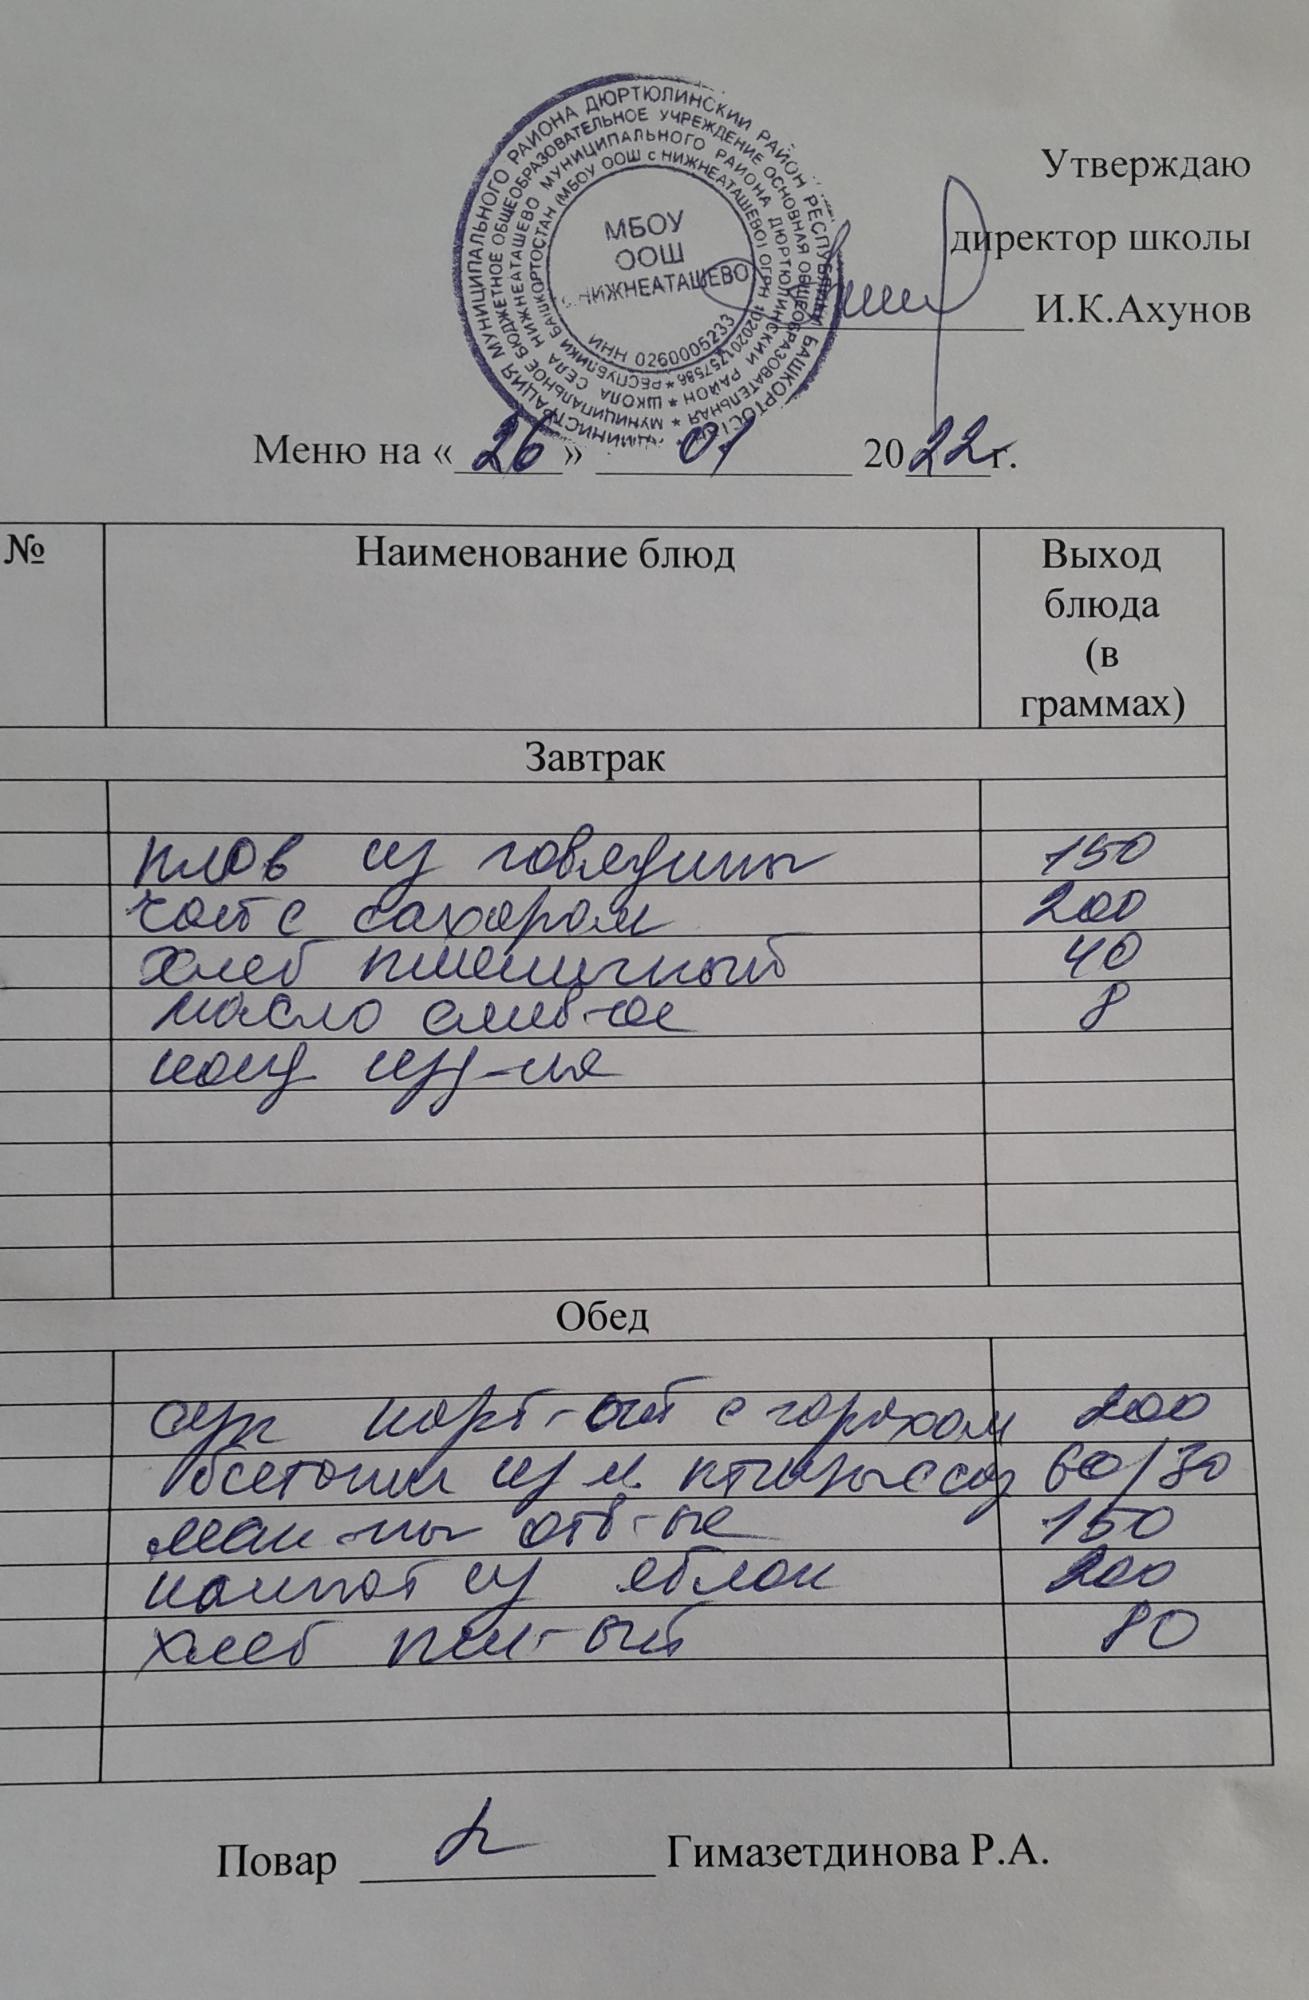 АДМИНИСТРАЦИЯ МУНИЦИПАЛЬНОГО РАЙОНА ДЮРТЮЛИНСКИЙ РАЙОН РЕСПУБЛИКИ БАШКОРТОСТАН
МУНИЦИПАЛЬНОЕ БЮДЖЕТНОЕ ОБЩЕОБРАЗОВАТЕЛЬНОЕ УЧРЕЖДЕНИЕ ОСНОВНАЯ ОБЩЕОБРАЗОВАТЕЛЬНАЯ
ШКОЛА СЕЛА НИЖНЕАТАШЕВО МУНИЦИПАЛЬНОГО РАЙОНА ДЮРТЮЛИНСКИЙ РАЙОН
РЕСПУБЛИКИ БАШКОРТОСТАН (МБОУ ООШ с НИЖНЕАТАШЕВО) ОГРН 1020201757586
МБОУ
ООШ
с. НИЖНЕАТАШЕВО
ИНН 0260005233
Утверждаю
директор школы
И.К.Ахунов
Меню на «26» 01 2022г.
№ Наименование блюд Выход
блюда
(в
граммах)
Завтрак
плов из говядины 150
чай с сахаром 200
хлеб пшеничный 40
масло слив-ое 8
конд изд-ия
Обед
суп карт-ый с горохом 200
биточки из м. птицы с соу 60/30
мак-ны отв-ые 150
компот из яблок 200
хлеб пш-ый 80
Повар Гимазетдинова Р.А.